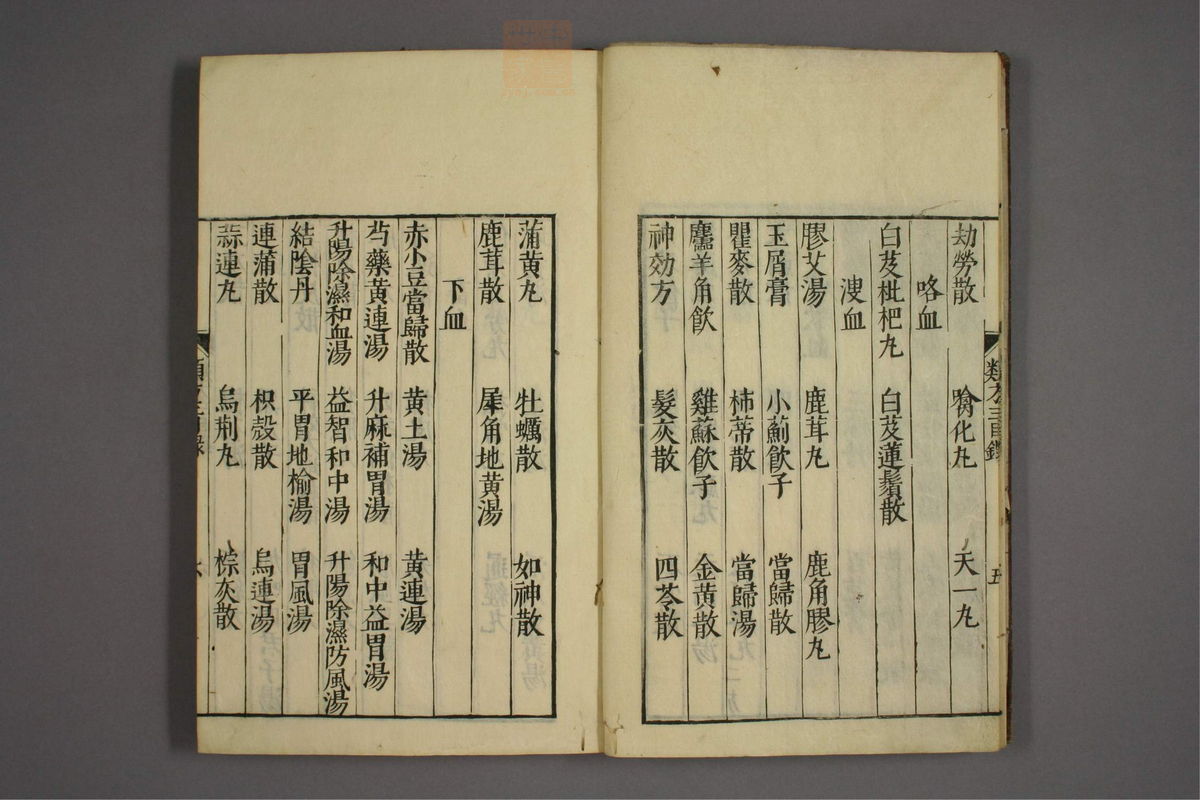 類方三目錄 五
劫勞散 噙化丸 天一丸
咯血
白芨枇杷丸 白芨蓮鬚散
溲血
膠艾湯 鹿茸丸 鹿角膠丸
玉屑膏 小薊飲子 當歸散
瞿麥散 柿蒂散 當歸湯
羚羊角飲 雞蘇飲子 金黃散
神效方 髮灰散 四苓散
蒲黃丸 牡蠣散 如神散
鹿茸散 犀角地黃湯
下血
赤小豆當歸散 黃土湯 黃連湯
芍藥黃連湯 升麻補胃湯 和中益胃湯
升陽除濕和血湯 益智和中湯 升陽除濕防風湯
結陰丹 平胃地榆湯 胃風湯
連蒲散 枳殼散 烏連湯
蒜連丸 烏荆丸 棕灰散